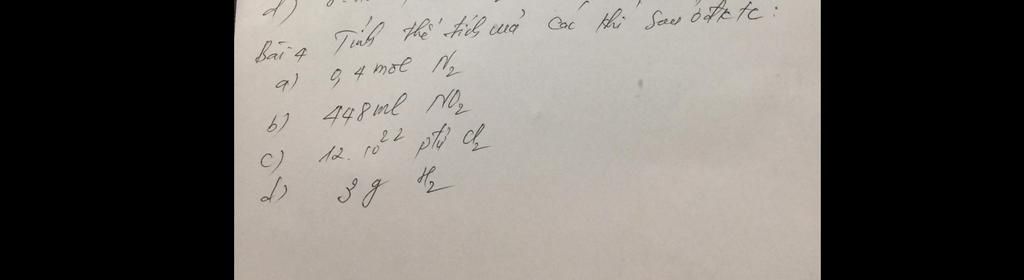 d)
Bài 4 Tính thể tích của các khí sau ở đktc:
a) 0,4 mol N₂
b) 448 ml NO₂
c) 12.10²² ptử Cl₂
d) 3 g H₂